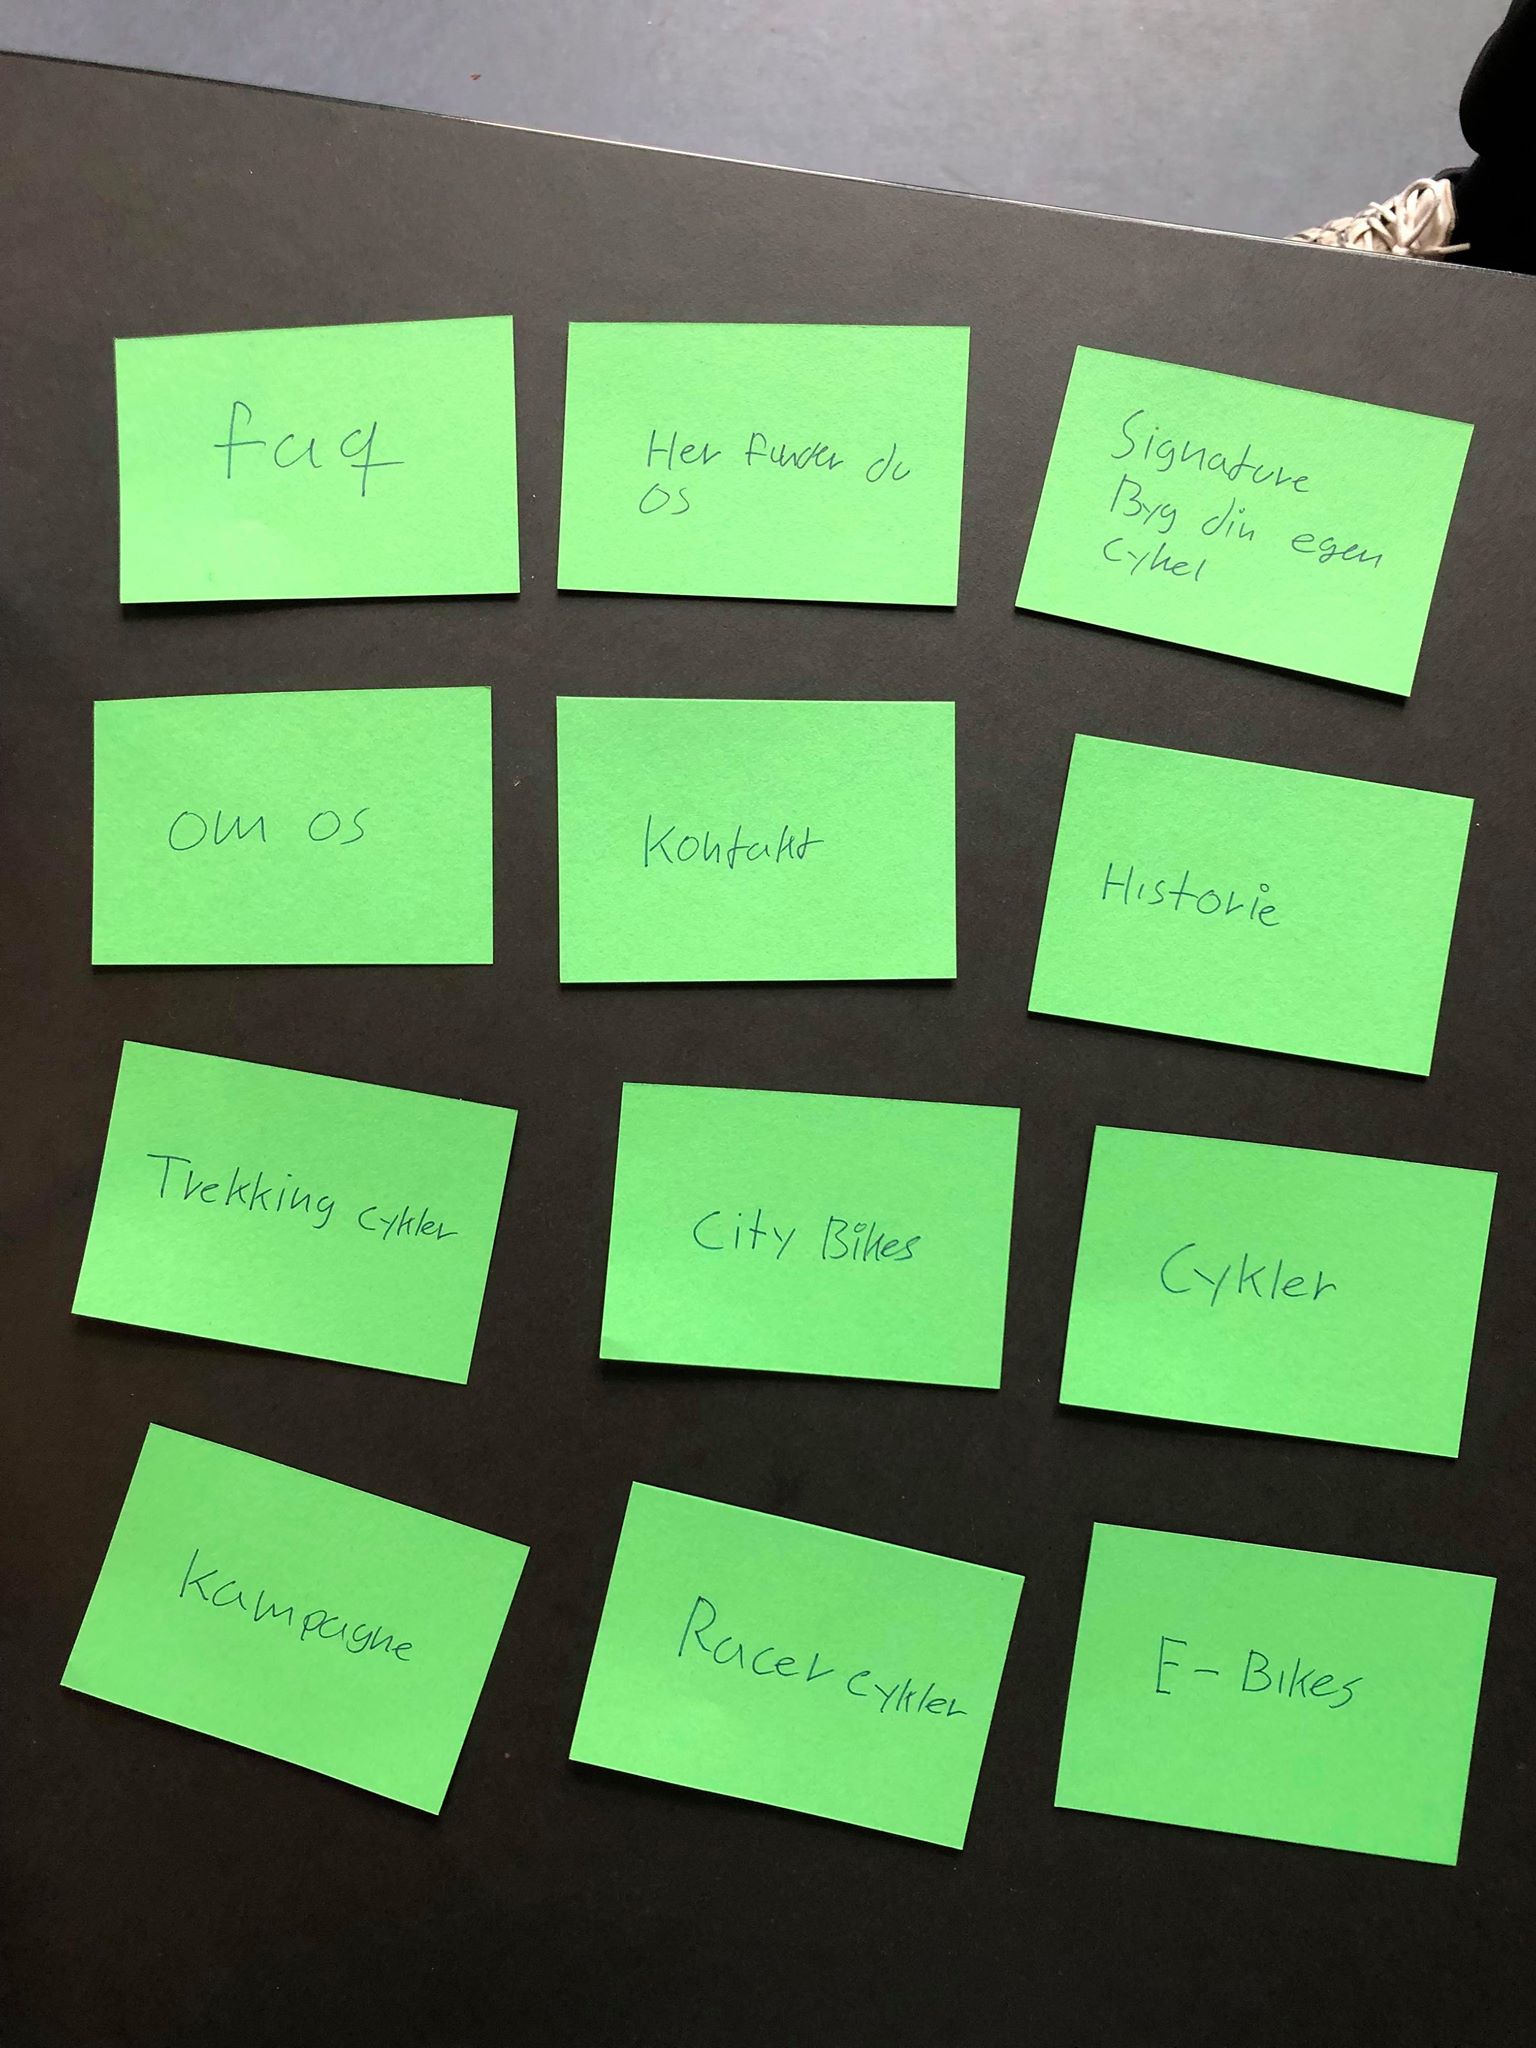 faq
Her finder du
os
Signature
Byg din egen
cykel
om os
Kontakt
Historie
Trekking cykler
City Bikes
Cykler
Kampagne
Racer cykler
E-Bikes